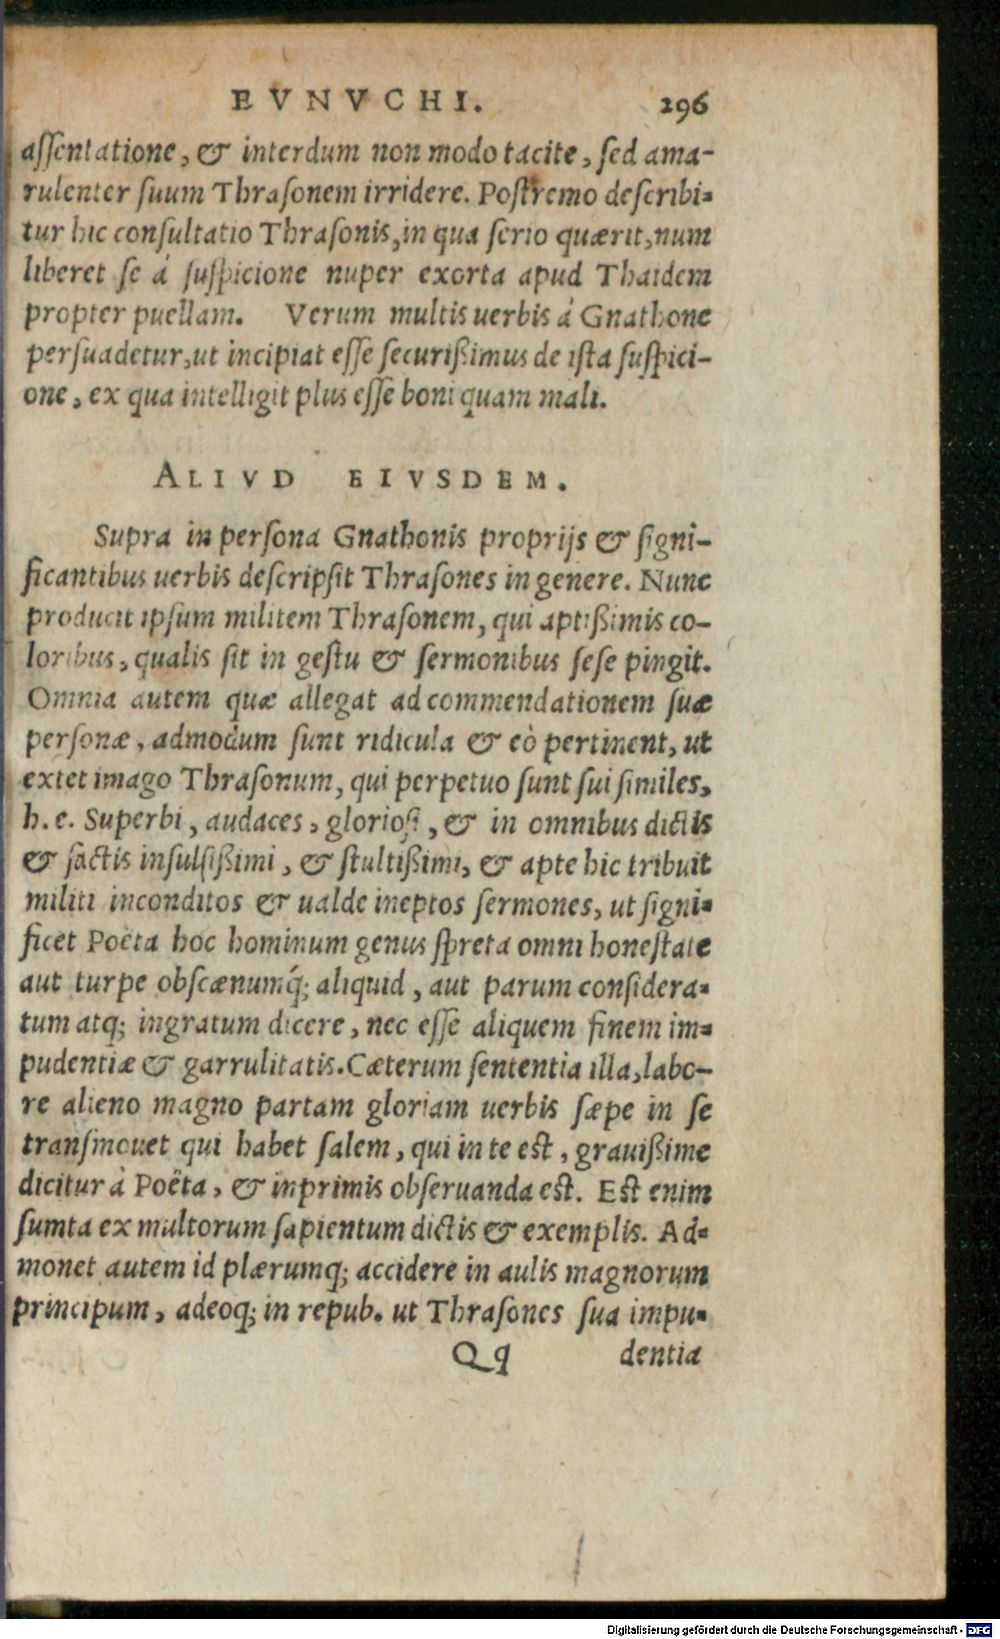 EVNVCHI. 296
assentatione, & interdum non modo tacite, sed ama-
rulenter suum Thrasonem irridere. Postremo describi-
tur hic consultatio Thrasonis, in qua serio quærit, num
liberet se á suspicione nuper exorta apud Thaidem
propter puellam. Verum multis uerbis á Gnathone
persuadetur, ut incipiat esse securißimus de ista suspici-
one, ex qua intelligit plus esse boni quam mali.
ALIVD EIVSDEM.
Supra in persona Gnathonis proprijs & signi-
ficantibus uerbis descripsit Thrasones in genere. Nunc
producit ipsum militem Thrasonem, qui aptißimis co-
loribus, qualis sit in gestu & sermonibus sese pingit.
Omnia autem quæ allegat ad commendationem suæ
personæ, admodum sunt ridicula & eò pertinent, ut
extet imago Thrasonum, qui perpetuo sunt sui similes,
h. e. Superbi, audaces, gloriosi, & in omnibus dictis
& factis insulsißimi, & stultißimi, & apte hic tribuit
militi inconditos & ualde ineptos sermones, ut signi-
ficet Poëta hoc hominum genus spreta omni honestate
aut turpe obscænumq́; aliquid, aut parum considera-
tum atq; ingratum dicere, nec esse aliquem finem im-
pudentiæ & garrulitatis. Cæterum sententia illa, labo-
re alieno magno partam gloriam uerbis sæpe in se
transmouet qui habet salem, qui in te est, grauißime
dicitur à Poëta, & inprimis obseruanda est. Est enim
sumta ex multorum sapientum dictis & exemplis. Ad-
monet autem id plærumq; accidere in aulis magnorum
principum, adeoq; in repub. ut Thrasones sua impu-
Qq dentia
Digitalisierung gefördert durch die Deutsche Forschungsgemeinschaft - DFG